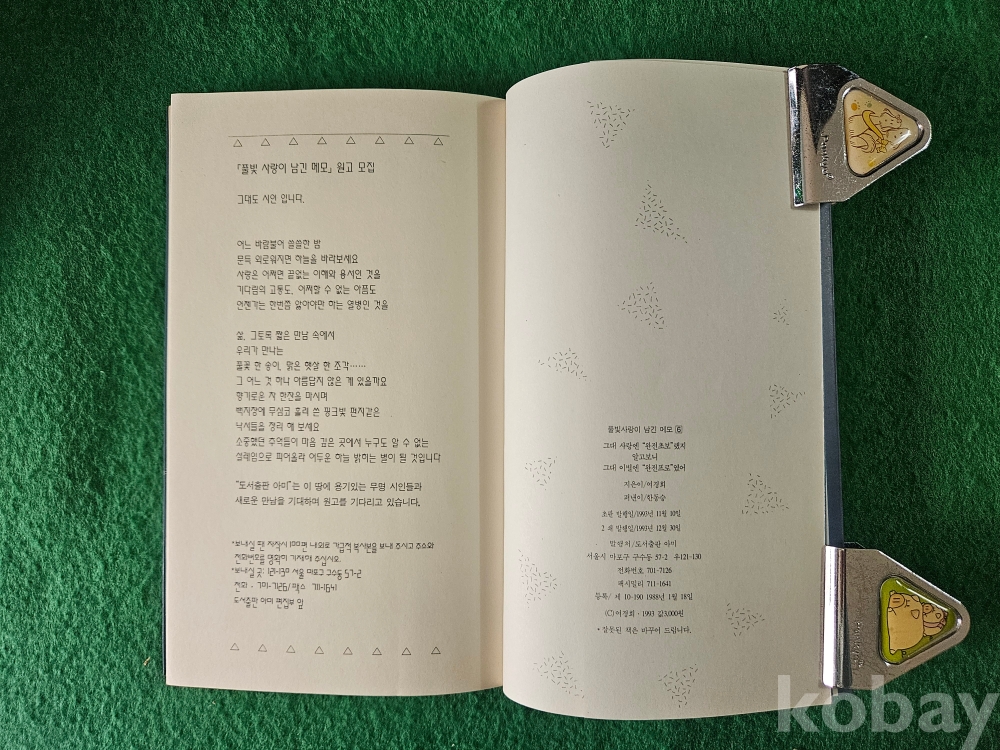 「풀빛 사랑이 남긴 메모」 원고 모집
그대도 시인 입니다.
어느 바람불어 쓸쓸한 밤
문득 외로워지면 하늘을 바라보세요
사랑은 어쩌면 끝없는 이해와 용서인 것을
기다림의 고통도, 어찌할 수 없는 아픔도
언젠가는 한번쯤 앓아야만 하는 열병인 것을
삶, 그토록 짧은 만남 속에서
우리가 만나는
풀꽃 한 송이, 맑은 햇살 한 조각……
그 어느 것 하나 아름답지 않은 게 있을까요
향기로운 차 한잔을 마시며
백지장에 무심코 흘려 쓴 핑크빛 편지같은
낙서들을 정리 해 보세요
소중했던 추억들이 마음 깊은 곳에서 누구도 알 수 없는
설레임으로 피어올라 어두운 하늘 밝히는 별이 될 것입니다
"도서출판 아미"는 이 땅에 용기있는 무명 시인들과
새로운 만남을 기대하며 원고를 기다리고 있습니다.
*보내실 땐 자작시 100편 내외로 가급적 복사본을 보내 주시고 주소와
전화번호를 명확히 기재해 주십시오.
*보내실 곳: 121-130 서울 마포구 구수동 57-2
전화 · 701-7126/팩스 711-1641
도서출판 아미 편집부 앞
풀빛사랑이 남긴 메모 6
그대 사랑엔 "완전초보"랬지
알고보니
그대 이별엔 "완전프로"였어
지은이/여경희
펴낸이/한동승
초판 발행일/1993년 11월 10일
2 쇄 발행일/1993년 12월 30일
발행처/도서출판 아미
서울시 마포구 구수동 57-2 우121-130
전화번호 701-7126
팩시밀리 711-1641
등록/제 10-190 1988년 1월 18일
(C)여경희 · 1993 값3,000원
*잘못된 책은 바꾸어 드립니다.
kobay